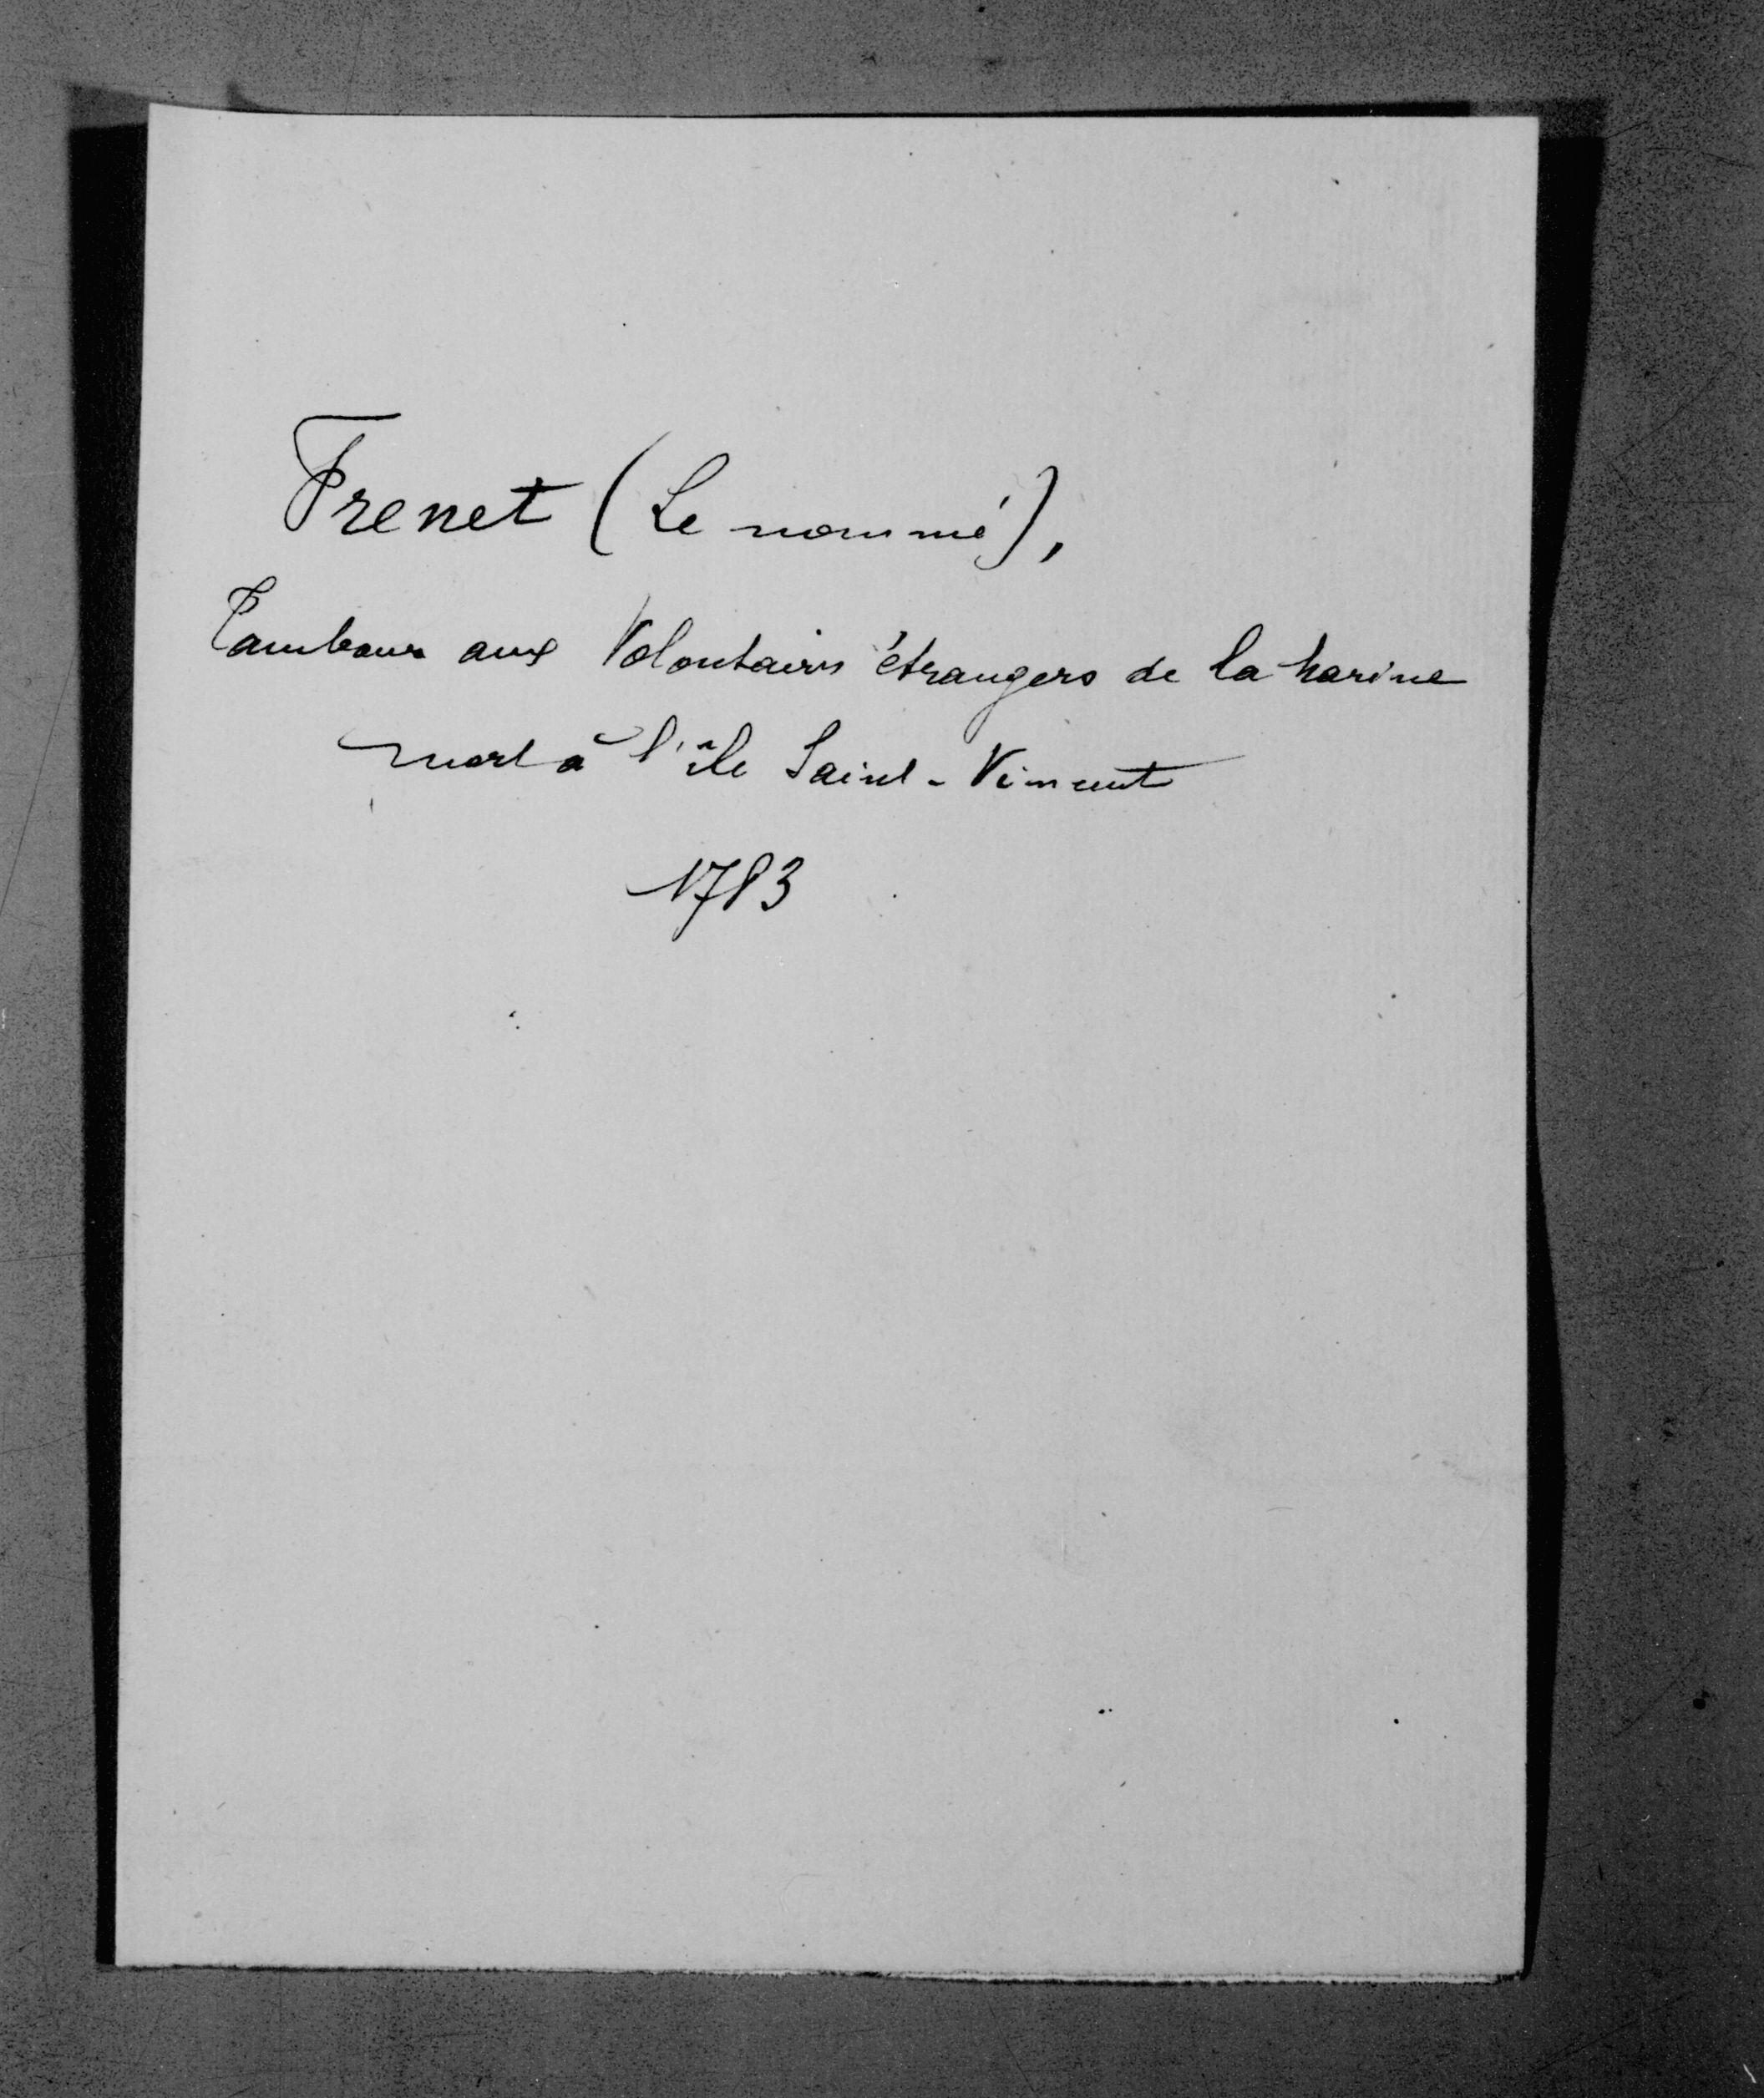 Frenet (Le nommé),
Tambour aux Volontaires étrangers de la Marine
mort à l'île Saint-Vincent
1783